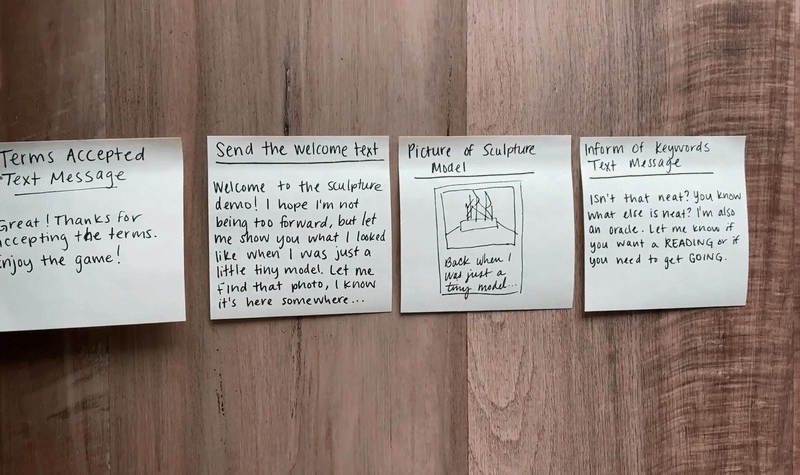 Terms Accepted
Text Message
Great! Thanks for
accepting the terms.
Enjoy the game!
Send the welcome text
Welcome to the sculpture
demo! I hope I'm not
being too forward, but let
me show you what I looked
like when I was just a
little tiny model. Let me
find that photo, I know
it's here somewhere...
Picture of Sculpture
Model
Back when I
was just a
tiny model...
Inform of Keywords
Text Message
Isn't that neat? You know
what else is neat? I'm also
an oracle. Let me know if
you want a READING or if
you need to get GOING.